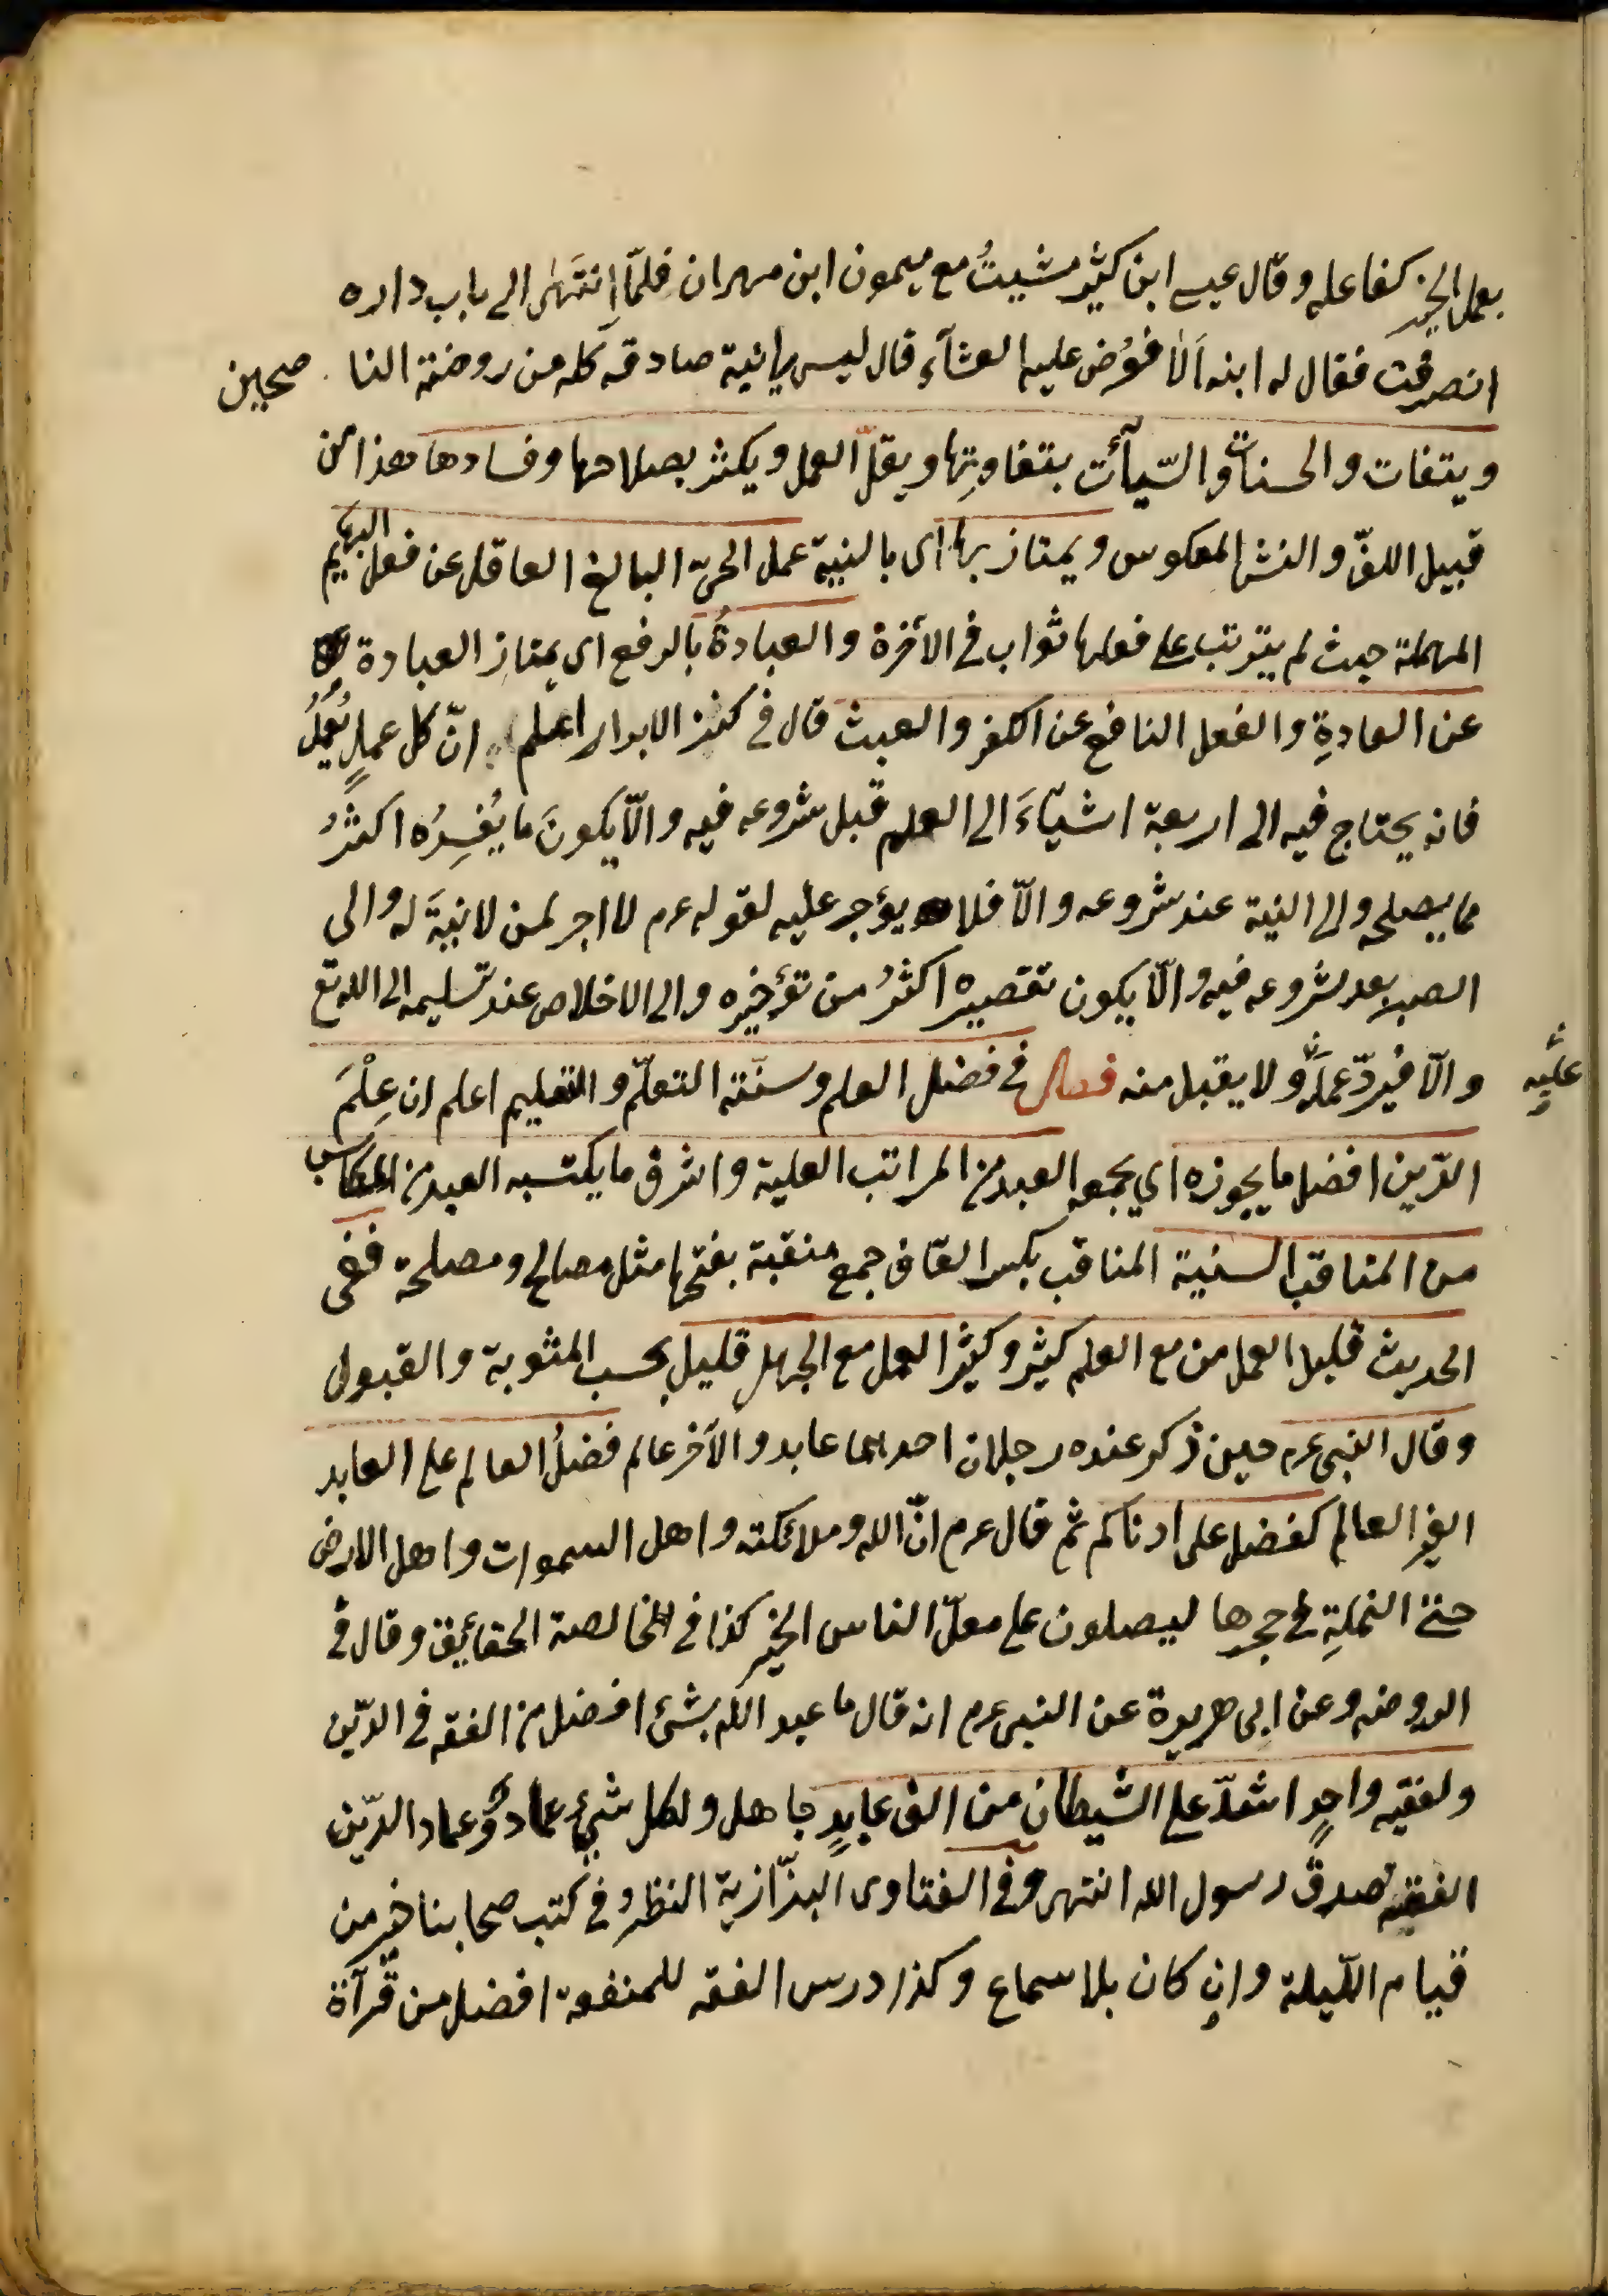 بعمل الخير كفاعله وقال عيسى ابن كثير مشيتُ مع ميمون ابن مهران فلمّا اِنتَهَى الى باب داره
انصرفت فقال له ابنه اَلاَ فوُض عليه العشآء قال ليس نية صادقه كله من روضة النا صحين
ويتفات والحسنات والسّيآٔت بتفاوتِها ويقلّ العمل ويكثر بصلاحها وفسادها هذا من
قبيل اللفّ والنشر المعكوس ويمتاز بها اى بالنية عمل الحىّ البالغ العاقل عن فعل البهايم
المهملة حيث لم يترتب على فعلها ثواب فى الآخرة والعبادةُ بالرفع اى يمتاز العبادة
عن العادةِ والفعل النافع عن اللغز والعبث قال فى كنز الابرار اعلم انّ كل عملٍ يُعمَلُ
فانه يحتاج فيه الى اربعة اشيآءَ الى العلم قبل شروعه فيه والّا يكونَ ما يُفسِدُه اكثرُ
مما يصلحه والى النية عند شروعه والّا فلا يؤجر عليه لقوله عرم لا اجر لمن لا نيةَ له والى
الصبر بعد شروعه فيه والّا يكون تقصيره اكثرُ من تؤخيره والى الاخلاص عند تسليمه الى الله تع
والّا فيردّ عملَه ولا يقبل منه فصل فى فضل العلم وسنّة التعلّم والتعليم اعلم ان عِلْمَ
عليه
الدّين افضل ما يحوزه اي يجمعه العبد من المراتب العلية واشرف ما يكتسبه العبد من المكاسب
من المناقب السنية المناقب بكسر القاف جمع منقبة بفتحها مثل مصالح ومصلحة ففى
الحديث قليل العمل من مع العلم كثير وكثير العمل مع الجهل قليل بحسب المثوبة والقبول
وقال النبى عرم حين ذكر عنده رجلان احدهما عابد والآخر عالم فضلُ العالم على العابد
الغير العالم كفضل على ادناكم ثم قال عرم انّ الله وملائكته واهل السموات واهل الارض
حتى النملةِ فى جحرها ليصلون على معلّ الناس الخير كذا فى الخالصة الحقائيق وقال فى
الروضه وعن ابى هريرة عن النبى عرم انه قال ما عبد الله بشئ افضل من الفقه فى الدّين
ولفقيه واحدٍ اشدّ على الشيطان من الف عابدٍ جاهل ولكل شئٍ عمادٌ وعماد الدّين
الفقيه صدق رسول الله انتهى وفى الفتاوى البزّازية النظرُ فى كتب صحابنا خير من
قيام اللّيلة وانِ كان بلا سماع وكذا درس الفقه للمنفعة افضل من قرآة